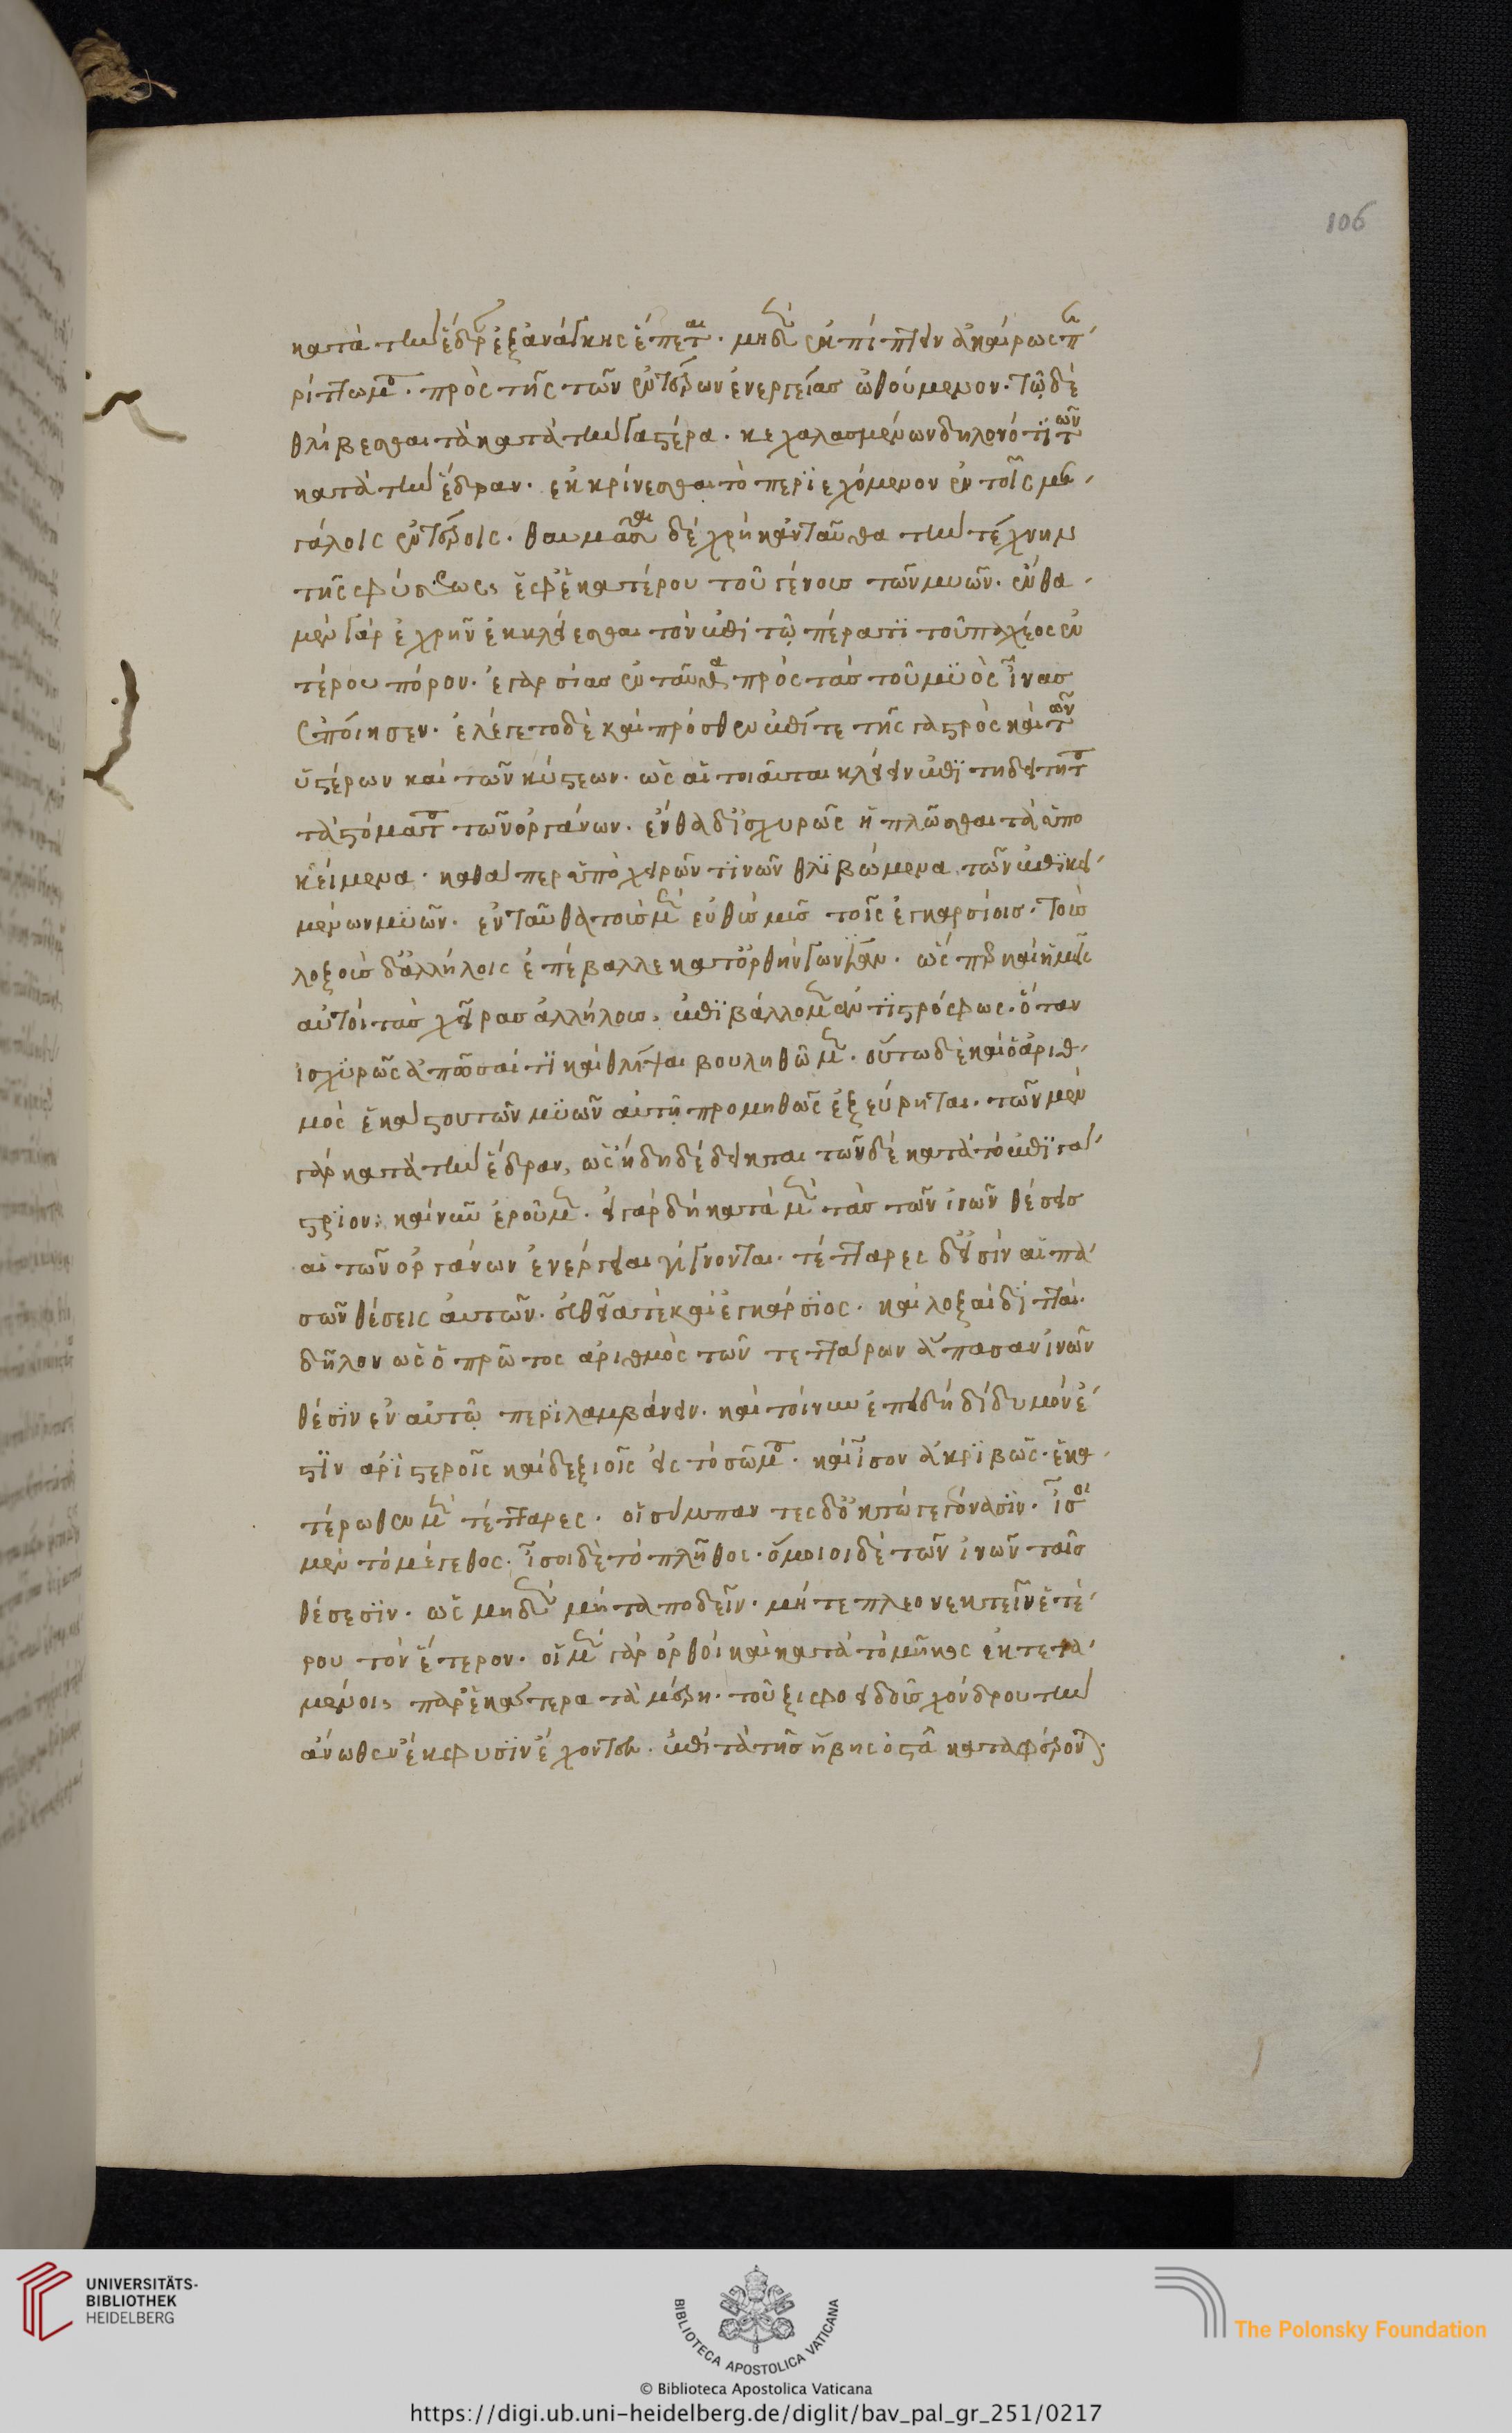 106
κατὰ τὴν ἕδραν ἐξανάγκης ἕπεται. μηδὲν ἐκπίπτειν ἀκαίρως πε-
ρίττωμα. πρὸς τῆς τῶν ἐντέρων ἐνεργείας ὠθούμενον. τῷ δὲ
θλίβεσθαι τὰ κατὰ τὴν γαστέρα. κεχαλασμένων δηλονότι τῶν
κατὰ τὴν ἕδραν. ἐκκρίνεσθαι τὸ περιεχόμενον ἐν τοῖς με-
γάλοις ἐντέροις. θαυμᾶσαι δὲ χρὴ κἀνταῦθα τὴν τέχνην
τῆς φύσεως, ἐφ' ἑκατέρου τοῦ γένους τῶν μυῶν. ἔνθα
μὲν γὰρ ἐχρῆν ἐκκλείεσθαι τὸν ἐπὶ τῷ πέρατι τοῦ παχέος ἐν
τέρου πόρον. ἐγκαρσίας ἐνταῦθα πρὸς τὰς τοῦ μυὸς ἶνας
ἐποίησεν. ἐλέγετο δὲ καὶ πρόσθεν ἐπί τε τῆς γαστρὸς καὶ τῶν
ὑστέρων καὶ τῶν κύστεων. ὡς αἱ τοιαῦται κλείειν ἐπιτηδειόταται
τὰ στόματα τῶν ὀργάνων. ἔνθα δ' ἰσχυρῶς ἡπλῶσθαι τὰ ὑπο
κείμενα. καθάπερ ὑπὸ χειρῶν τινῶν θλιβόμενα τῶν ἐπικει-
μένων μυῶν. ἐνταῦθα τοῖς μὲν εὐθέσιν τοῖς ἐγκαρσίοις. τοῖς
λοξοῖς δ' ἀλλήλοις ἐπέβαλλε κατ' ὀρθὴν γωνίαν. ὥσπερ καὶ ἡμεῖς
αὐτοὶ τὰς χεῖρας ἀλλήλαις, ἐπιβάλλομεν ἀντιστρόφως. ὅταν
ἰσχυρῶς ἀπῶσαί τι καὶ θλῖψαι βουληθῶμεν. οὕτω δὲ καὶ ὁ ἀριθ-
μὸς ἑκάστου τῶν μυῶν αὐτῇ προμηθῶς ἐξεύρηται. τῶν μὲν
γὰρ κατὰ τὴν ἕδραν, ὡς ἤδη δέδεικται τῶν δὲ κατὰ τὸ ἐπιγά-
στριον; καὶ νῦν ἐροῦμεν. εἰ γὰρ δὴ κατὰ μὲν τὰς τῶν ἰνῶν θέσεις
αἱ τῶν ὀργάνων ἐνέργειαι γίγνονται. τέτταρες δ' εἰσὶν αἱ πα-
σῶν θέσεις αὐτῶν. εὐθεῖα τε καὶ ἐγκάρσιος. καὶ λοξαὶ διτταί.
δῆλον ὡς ὁ πρῶτος ἀριθμὸς τῶν τεττάρων ἅπασαν ἰνῶν
θέσιν ἐν αὐτῷ περιλαμβάνειν. καὶ τοίνυν ἐπειδὴ δίδυμόν ἐ-
στιν ἀριστεροῖς καὶ δεξιοῖς εἰς τὸ σῶμα. καὶ ἴσον ἀκριβῶς. ἑκα-
τέρωθεν μὲν τέτταρες. οἱ σύμπαντες δ' ὀκτὼ γεγόνασιν. ἴσοι
μὲν τὸ μέγεθος. ἴσοι δὲ τὸ πλῆθος. ὅμοιοι δὲ τῶν ἰνῶν ταῖς
θέσεσιν. ὡς μηδὲν μήτ' ἀποδεῖν. μήτε πλεονεκτεῖν ἑτέ-
ρου τὸν ἕτερον. οἱ μὲν γὰρ ὀρθοὶ καὶ κατὰ τὸ μῆκος ἐκτετα-
μένοι, παρ' ἑκάτερα τὰ μέρη. τοῦ ξιφοειδοῦς χόνδρου τὴν
ἄνωθεν ἔκφυσιν ἔχοντες. ἐπὶ τὰ τῆς ἥβης ὀστᾶ καταφέρονται.
UNIVERSITÄTS-
BIBLIOTHEK
HEIDELBERG
BIBLIOTECA APOSTOLICA VATICANA
The Polonsky Foundation
© Biblioteca Apostolica Vaticana
https://digi.ub.uni-heidelberg.de/diglit/bav_pal_gr_251/0217